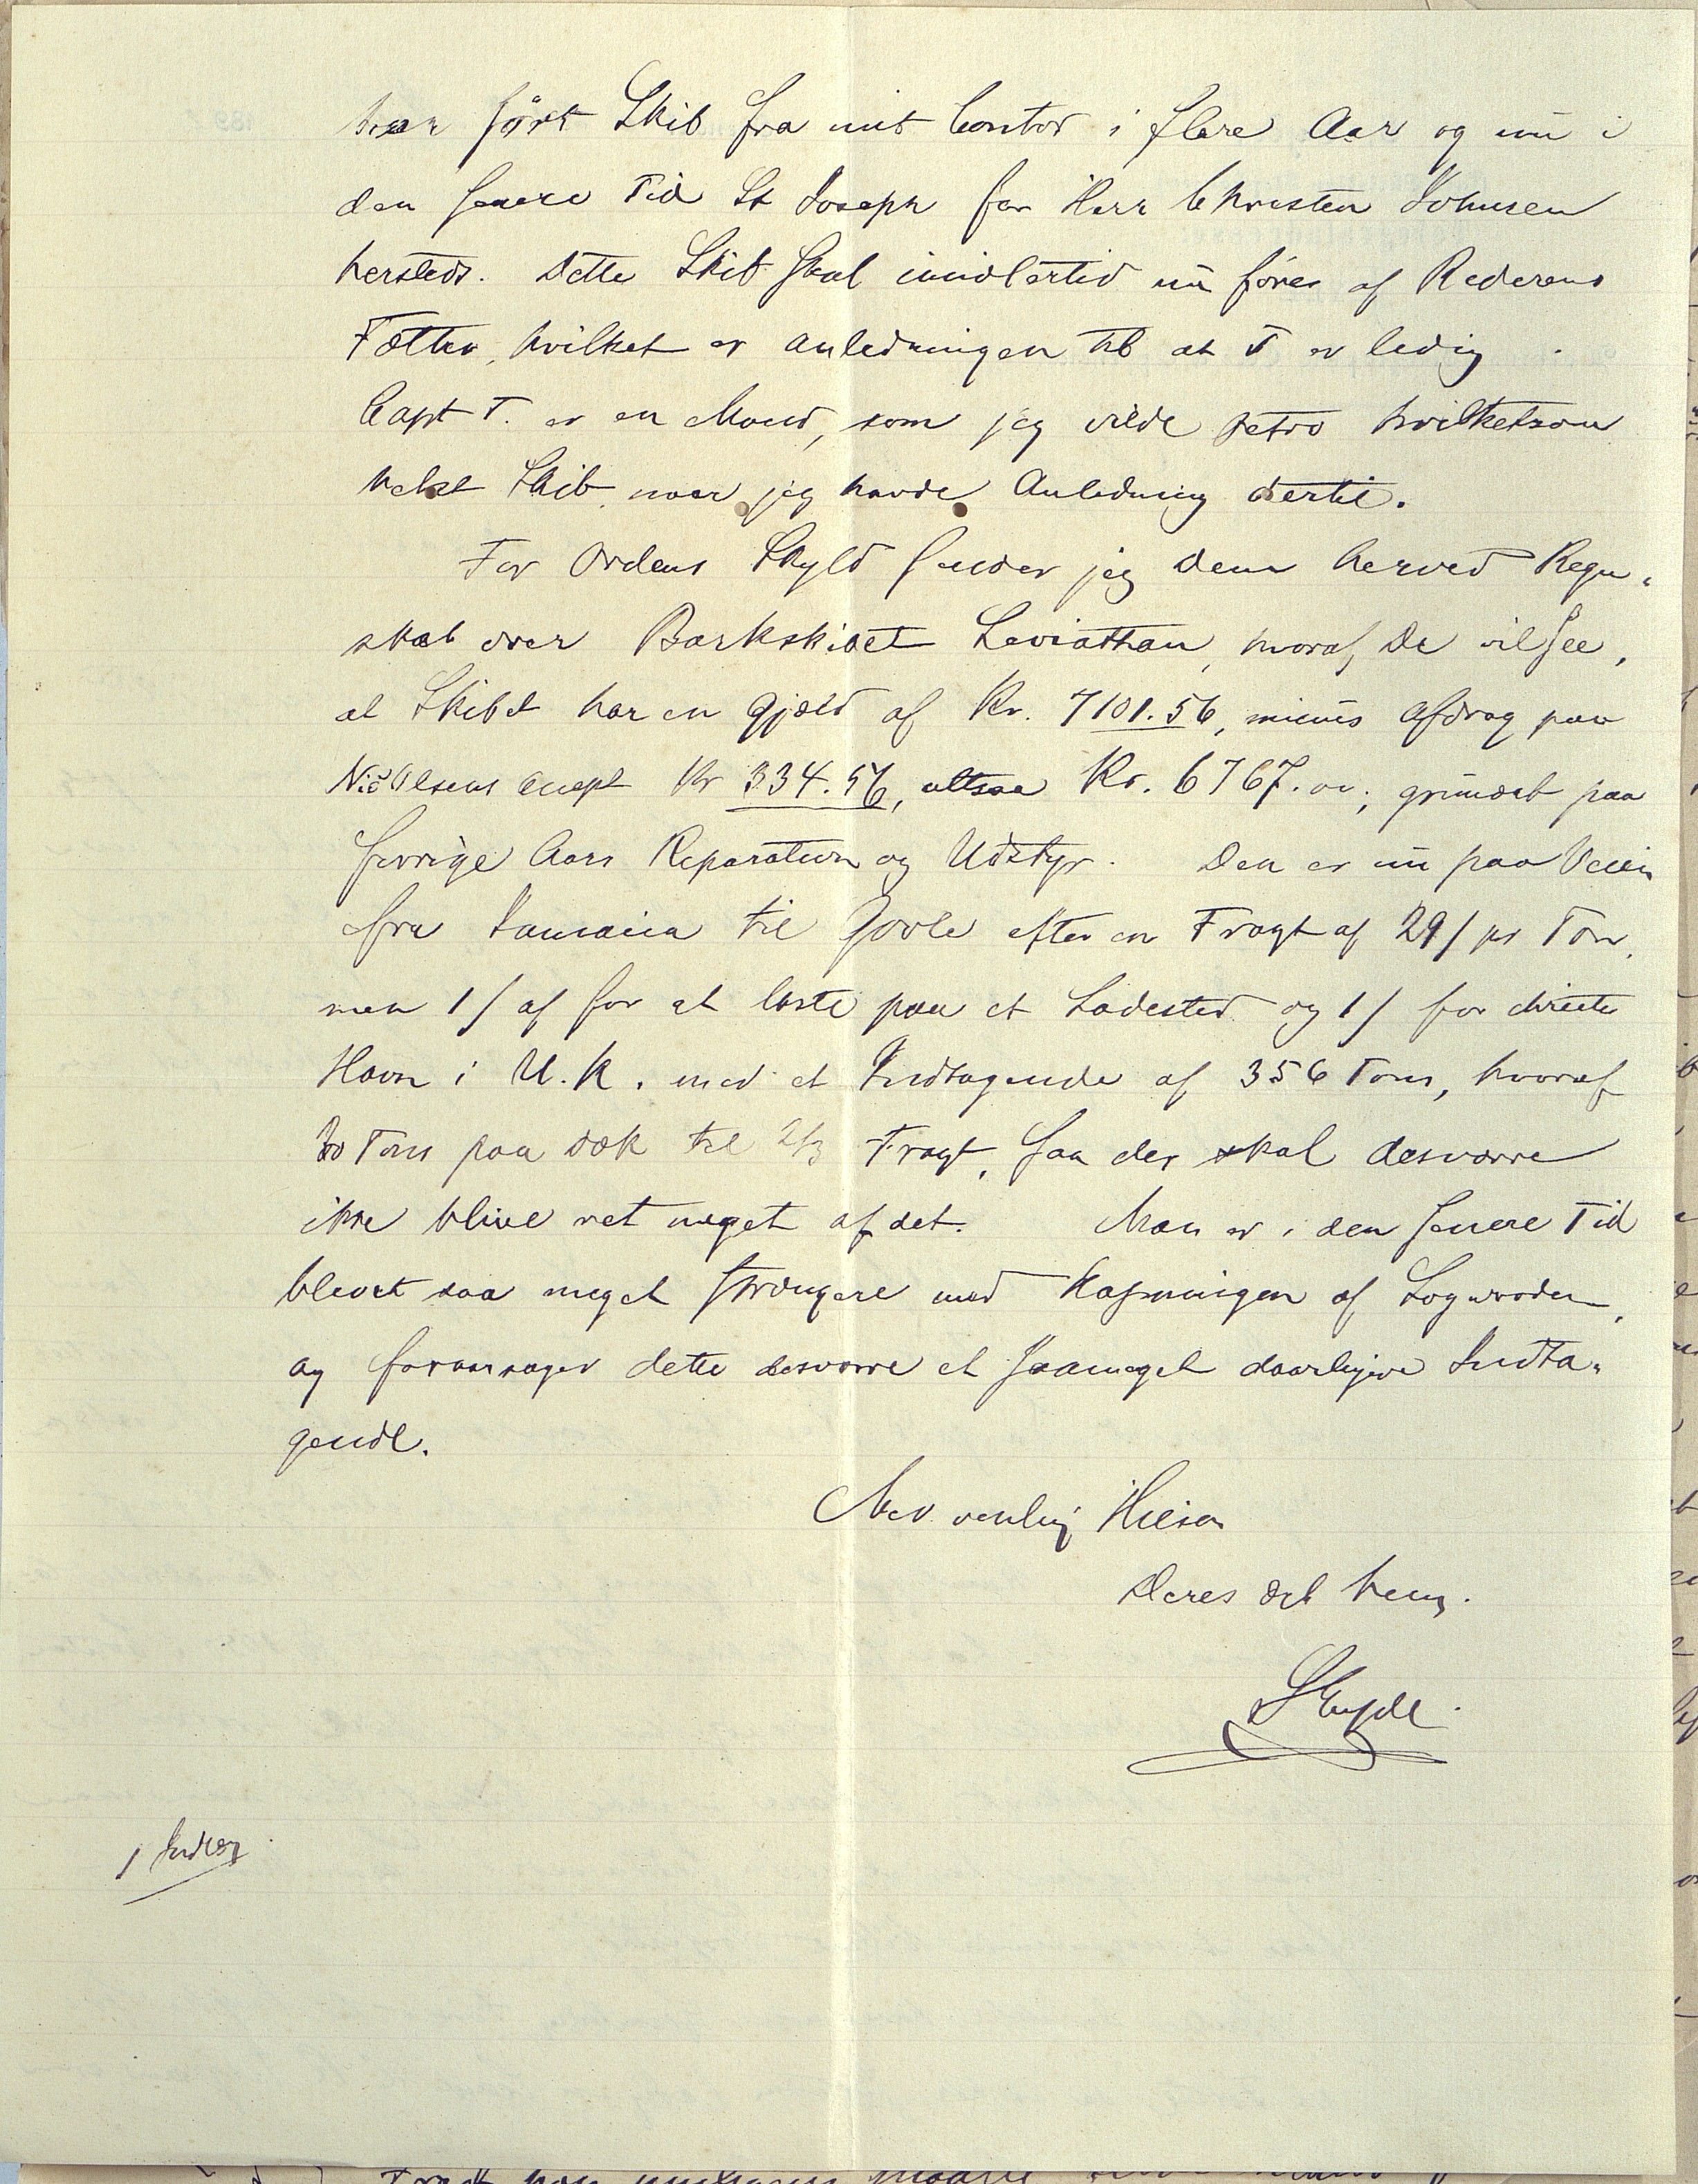 han ført Skib fra mit Contor i flere Aar og nu i
den senere Tid St Joseph for Herr Christen Johnsen
hersteds. Dette Skib skal imidlertid nu føres af Rederens
Fætter, hvilket er Anledningen til at T er ledig.
Capt T. er en Mand, som jeg vilde betro hvilketsom
helst Skib naar jeg havde Anledning dertil.
For Ordens Skyld sender jeg Dem herved Regn-
skab over Barkskibet Leviathan, hvoraf De vil see,
at Skibet har en Gjæld af Kr. 7101.56, minus Afdrag paa
Olsens accept Kr 334.56, altsaa Kr. 6767.00, grundet paa
forrige Aars Reparation og Udstyr. Den er nu paa Veien
fra Jamaica til Goole efter en Fragt af 29/ pr Ton,
men 1/ af for at laste paa et Ladested og 1/ for directe
Havn i U.K. med et Indtagende af 356 Tons, hvoraf
Tons paa Dæk til 2/3 Fragt, saa der skal desværre
ikke blive ret meget af det. Man er i den senere Tid
blevet saa meget strængere med Kapningen af Logwooden,
og foraarsager dette desværre et saameget daarligere Indta-
gende.
Med venlig Hilsen
Deres
1 Indlæg